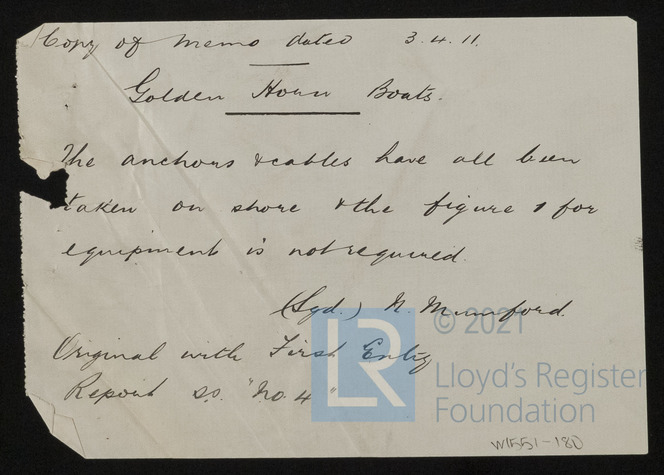 Copy of Memo dated 3.4.11.
Golden Horn Boats.
The anchors & cables have all been
taken on shore & the figure 1 for
equipment is not required.
(Sgd.) N. Mumford.
Original with First Entry
Report s.s. "No. 4"
LR
© 2021
Lloyd's Register
Foundation
W1551-180